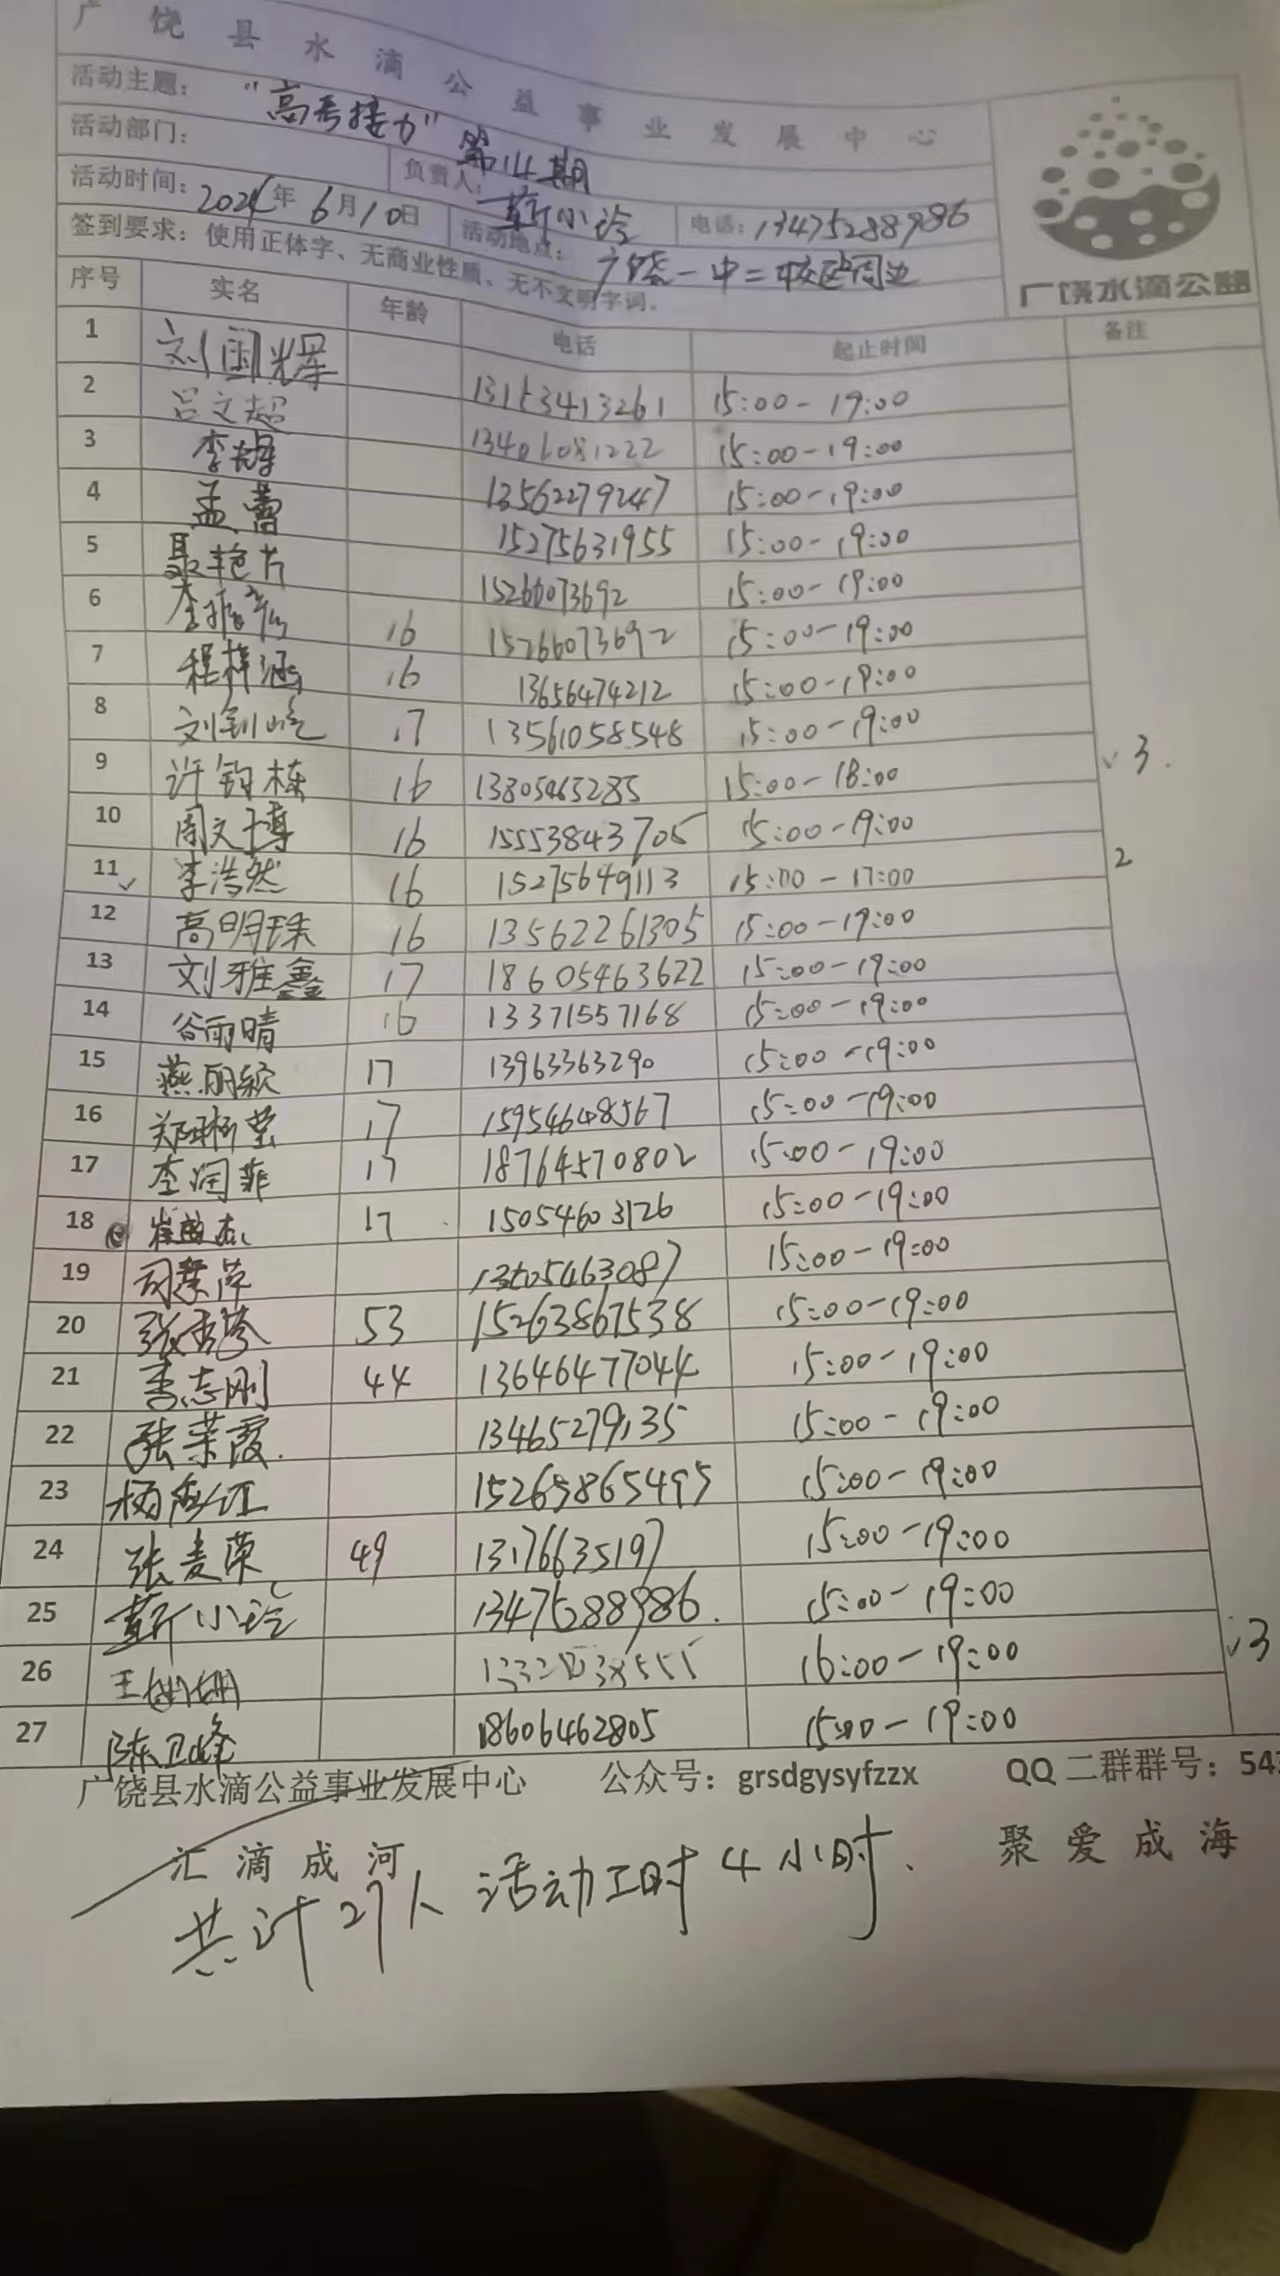 广饶县水滴公益事业发展中心
活动主题： “高考接力”第14期
活动部门： 负责人： 靳小玲 电话：13475288986
活动时间：2024年6月10日 活动地点： 广饶一中二校区周边
签到要求：使用正体字、无商业性质、无不文明字词。
广饶水滴公益
序号 实名 年龄 电话 起止时间 备注
1 刘国光 13153413261 15:00-19:00
2 吕文超 13406081222 15:00-19:00
3 李 13562279247 15:00-19:00
4 孟蕾 15275631955 15:00-19:00
5 聂艳芹 15266073692 15:00-19:00
6 李 16 15266073692 15:00-19:00
7 程梓涵 16 13656474212 15:00-19:00
8 刘钊屹 17 13561058548 15:00-19:00
9 许钧栋 16 13805465285 15:00-18:00 ✓3.
10 周文博 16 15553843705 15:00-19:00
11 ✓ 李浩然 16 15275649113 15:00-17:00 2
12 高明珠 16 13562261305 15:00-19:00
13 刘雅鑫 17 18605463622 15:00-19:00
14 谷雨晴 16 13371557168 15:00-19:00
15 燕丽颖 17 13963363290 15:00-19:00
16 郑琳莹 17 15954648567 15:00-19:00
17 李润菲 17 18764570802 15:00-19:00
18 崔 17 15054603126 15:00-19:00
19 司 萍 15:00-19:00
20 张秀琴 53 15263867538 15:00-19:00
21 李志刚 44 13646477044 15:00-19:00
22 张荣霞. 13465279135 15:00-19:00
23 杨 红 15265865495 15:00-19:00
24 张麦荣 49 13176635197 15:00-19:00
25 靳小玲 13475288986. 15:00-19:00
26 王姗姗 16:00-19:00 ✓3
27 陈卫峰 18606462805 15:00-19:00
广饶县水滴公益事业发展中心 公众号：grsdgysyfzzx QQ二群群号：543
汇滴成河 聚爱成海
共计27人 活动工时4小时.